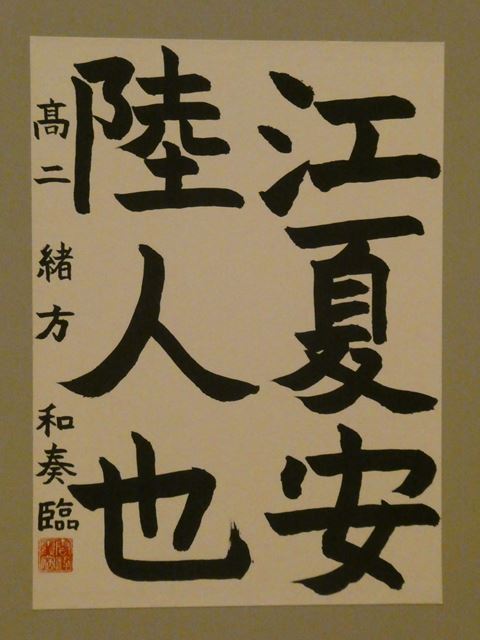 江夏安
陸人也
髙二 緒方 和奏臨